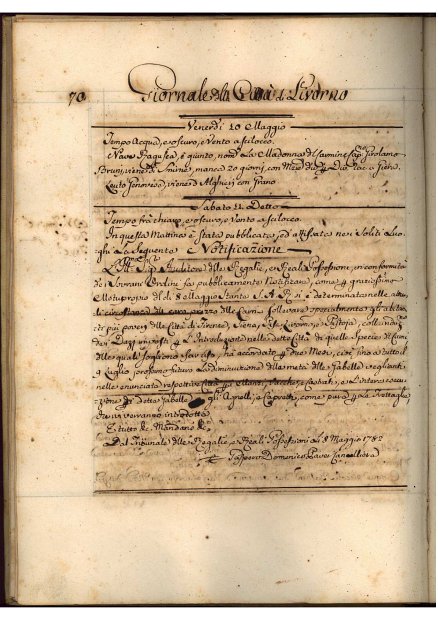 70 Giornale della Città di Livorno
Venerdì 10 Maggio
Tempo Acqua, e oscuro, e Vento a scilocco
Nave Ragusea, è giunto, nom.ta La Madonna del Carmine Cap.n Girolamo
Bruni, viene da Smirne, manca 20 giorni, con Merci
Leuto Genovese, viene da Alghieri con Grano
Sabato 11 Detto
Tempo fra chiaro, e oscuro, e Vento a scilocco
In questa Mattina è stata pubblicata, ed affissata nei Soliti Luo-
ghi la Seguente Notificazione
L'Ill.mo Sig.re Auditore delle Regalie, e Reali Possessioni, in conformità
dei Sovrani Ordini fa pubblicamente Notificare, come per grazioso
Motuproprio del dì 8 Maggio Stante S. A. R. si è determinata nelle attua-
li circostanze del caro prezzo delle Carni sollevare specialmente gli abitan-
ti più poveri delle Città di Firenze, Siena, Pisa, Livorno, e Pistoja, colla
dei Dazzi imposti per l'Introduzione nelle dette Città di quelle Specie di Carni,
delle quali sogliono far uso, ha accordato per due Mesi, cioè, fino a tutto il
9 Luglio prossimo futuro la diminuzione della metà delle Gabelle veglianti
nelle enunciate respettive Città per Manzi, Vacche, e Castrati, e l'intera esen-
zione per dette Gabelle per gli Agnelli, e Capretti, come pure per la
che vi verranno introdotta
E tutto &c. Mandan: &c.
Dal Tribunale delle Regalie, e Reali Possessioni li 8 Maggio 1782
Gasparo Domenico Paver Cancelliere